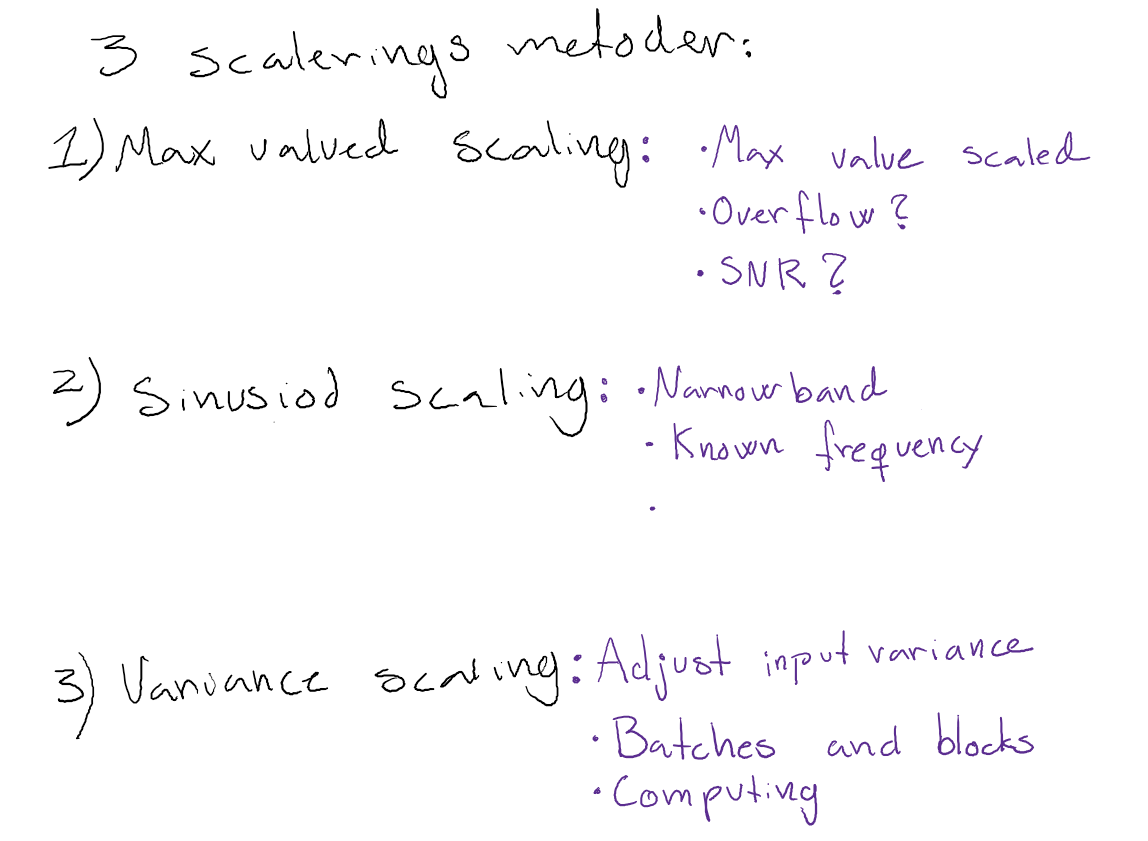 3 scalerings metoder:
1) Max valued scaling: • Max value scaled
• Overflow?
• SNR?
2) Sinusiod scaling: • Narrowband
• Known frequency
•
3) Variance scaling: Adjust input variance
• Batches and blocks
• Computing